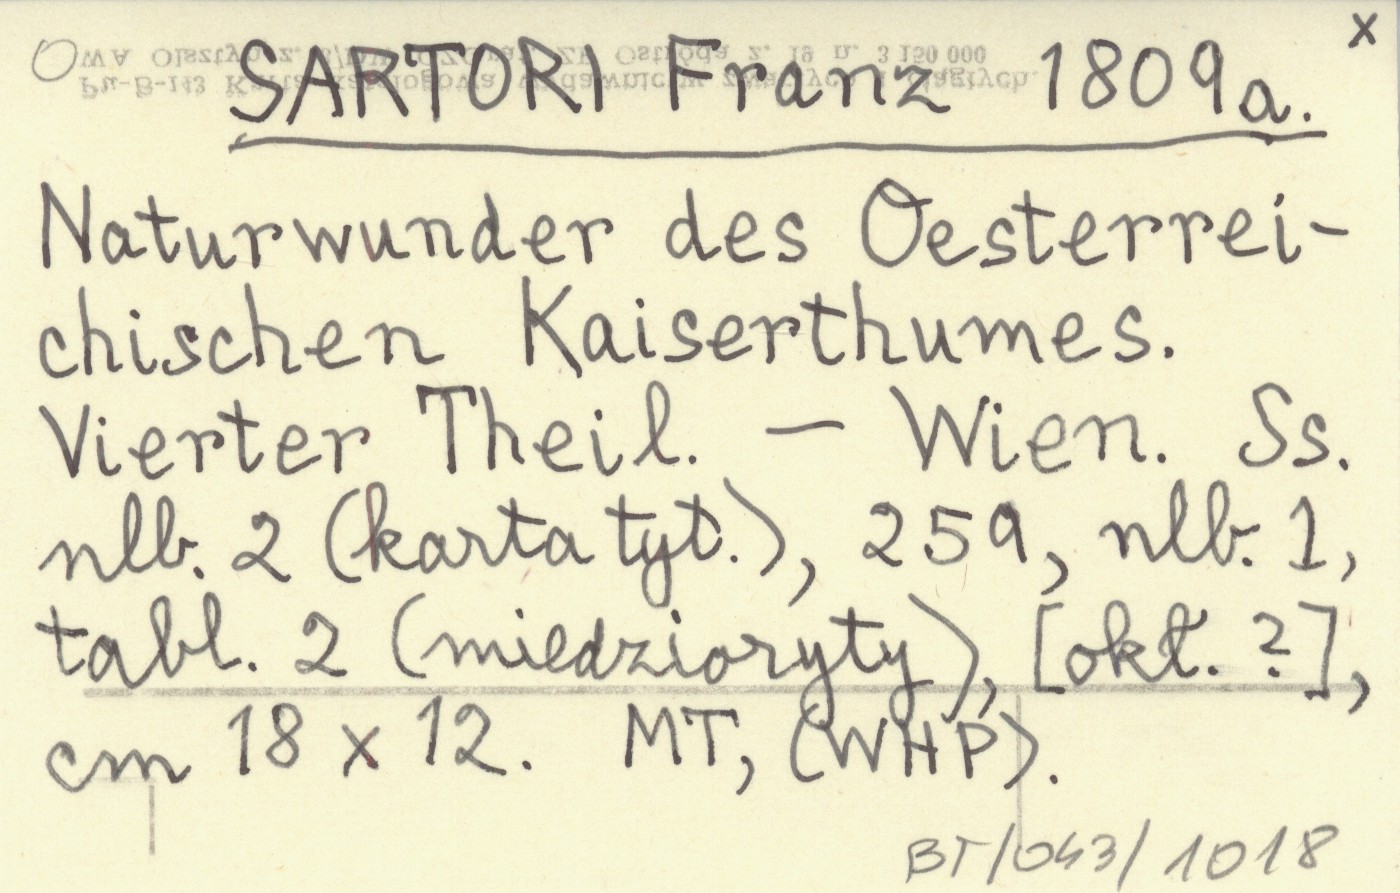 x
SARTORI Franz 1809a.
Naturwunder des Oesterrei-
chischen Kaiserthumes.
Vierter Theil. — Wien. Ss.
nlb. 2 (karta tyt.), 259, nlb. 1,
tabl. 2 (miedzioryty), [okt. ?],
cm 18 x 12. MT, (WHP).
BT/043/1018